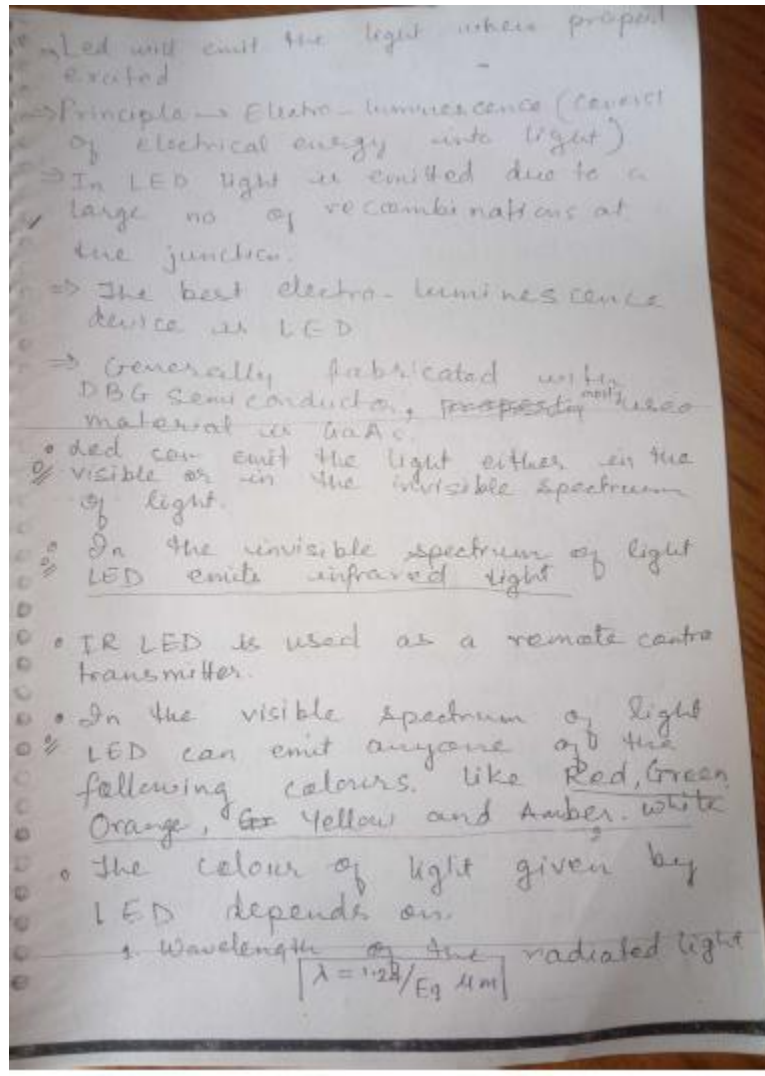 → Led will emit the light when proper
excited
⇒ Principle → Electro-luminescence (conversi
of electrical energy into light)
⇒ In LED light is emitted due to a
large no of recombinations at
the junction.
⇒ The best electro-luminescence
device is LED
⇒ Generally fabricated with
DBG Semiconductor, mostly used
material is GaAs
• Led can emit the light either in the
visible or in the invisible spectrum
of light.
• In the invisible spectrum of light
LED emits infrared light
• IR LED is used as a remote contro
transmitter.
• In the visible spectrum of light
LED can emit anyone of the
following colours. like Red, Green
Orange, Yellow and Amber, white
• The colour of light given by
LED depends on.
1. Wavelength of the radiated light
λ = 1.24/Eg μm